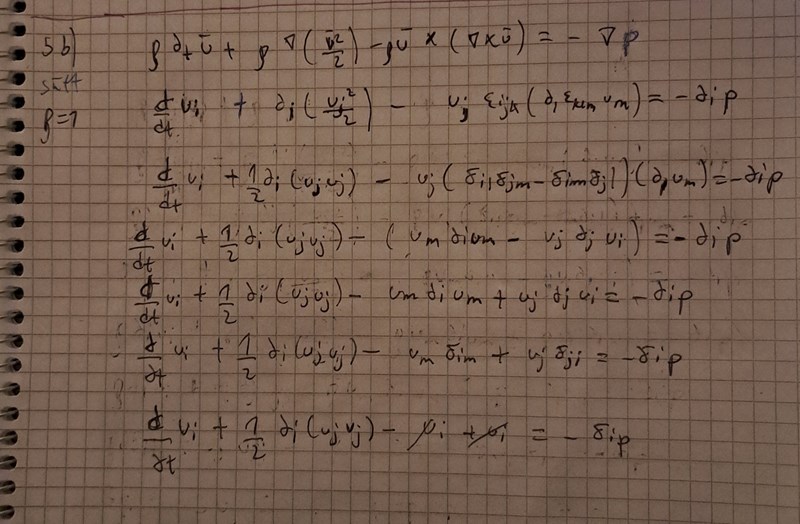 5b) ρ ∂t ū + ρ ∇(v̄²/2) - ρū × (∇×ū) = - ∇p
sätt
ρ=1
d/dt vi + ∂i(vj²/2) - vj εijk(∂l εklm vm) = -∂i p
d/dt vi + 1/2 ∂i(vjvj) - vj(δil δjm - δim δjl)(∂l vm) = -∂i p
d/dt vi + 1/2 ∂i(vjvj) - (vm ∂i vm - vj ∂j vi) = -∂i p
d/dt vi + 1/2 ∂i(vjvj) - vm ∂i vm + vj ∂j vi = -∂i p
d/dt vi + 1/2 ∂i(vjvj) - vm δim + vj δji = -δi p
d/dt vi + 1/2 ∂i(vjvj) - vi + vi = - δip